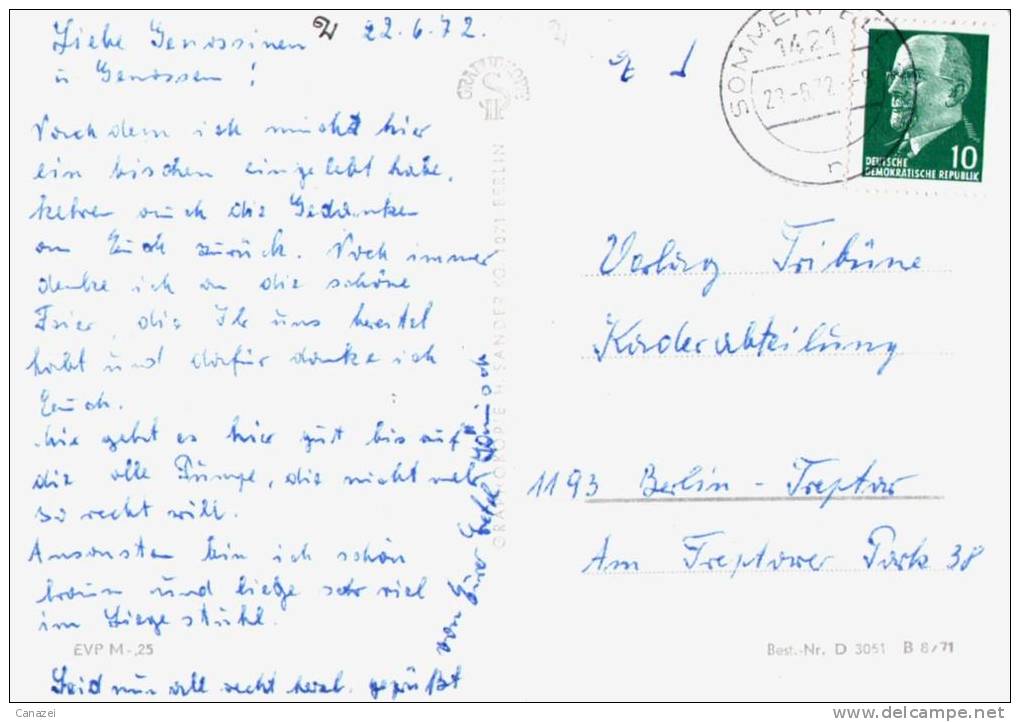 22.6.72.
Liebe Genossinen
u Genossen!
Nach dem ich mich hier
ein bischen eingelebt habe,
kehren auch die Gedanken
an Euch zurück. Noch immer
denke ich an die schöne
Feier, die Ihr uns bereitet
habt und dafür danke ich
Euch.
Mir geht es hier gut bis auf
die alte Pumpe, die nicht mehr
so recht will.
Ansonsten bin ich schön
braun und liege sehr viel
im Liegestuhl.
EVP M -,25
Seid nun all recht herzl. gegrüßt
von Eurer
GRAPHOKOPIE H. SANDER KG. 1071 BERLIN
SOMMERFELD
1421
DEUTSCHE
DEMOKRATISCHE REPUBLIK
10
Verlag Tribüne
Kaderabteilung
1193 Berlin - Treptow
Am Treptower Park 38
Best.-Nr. D 3051 B 8/71
Canazei
www.delcampe.net